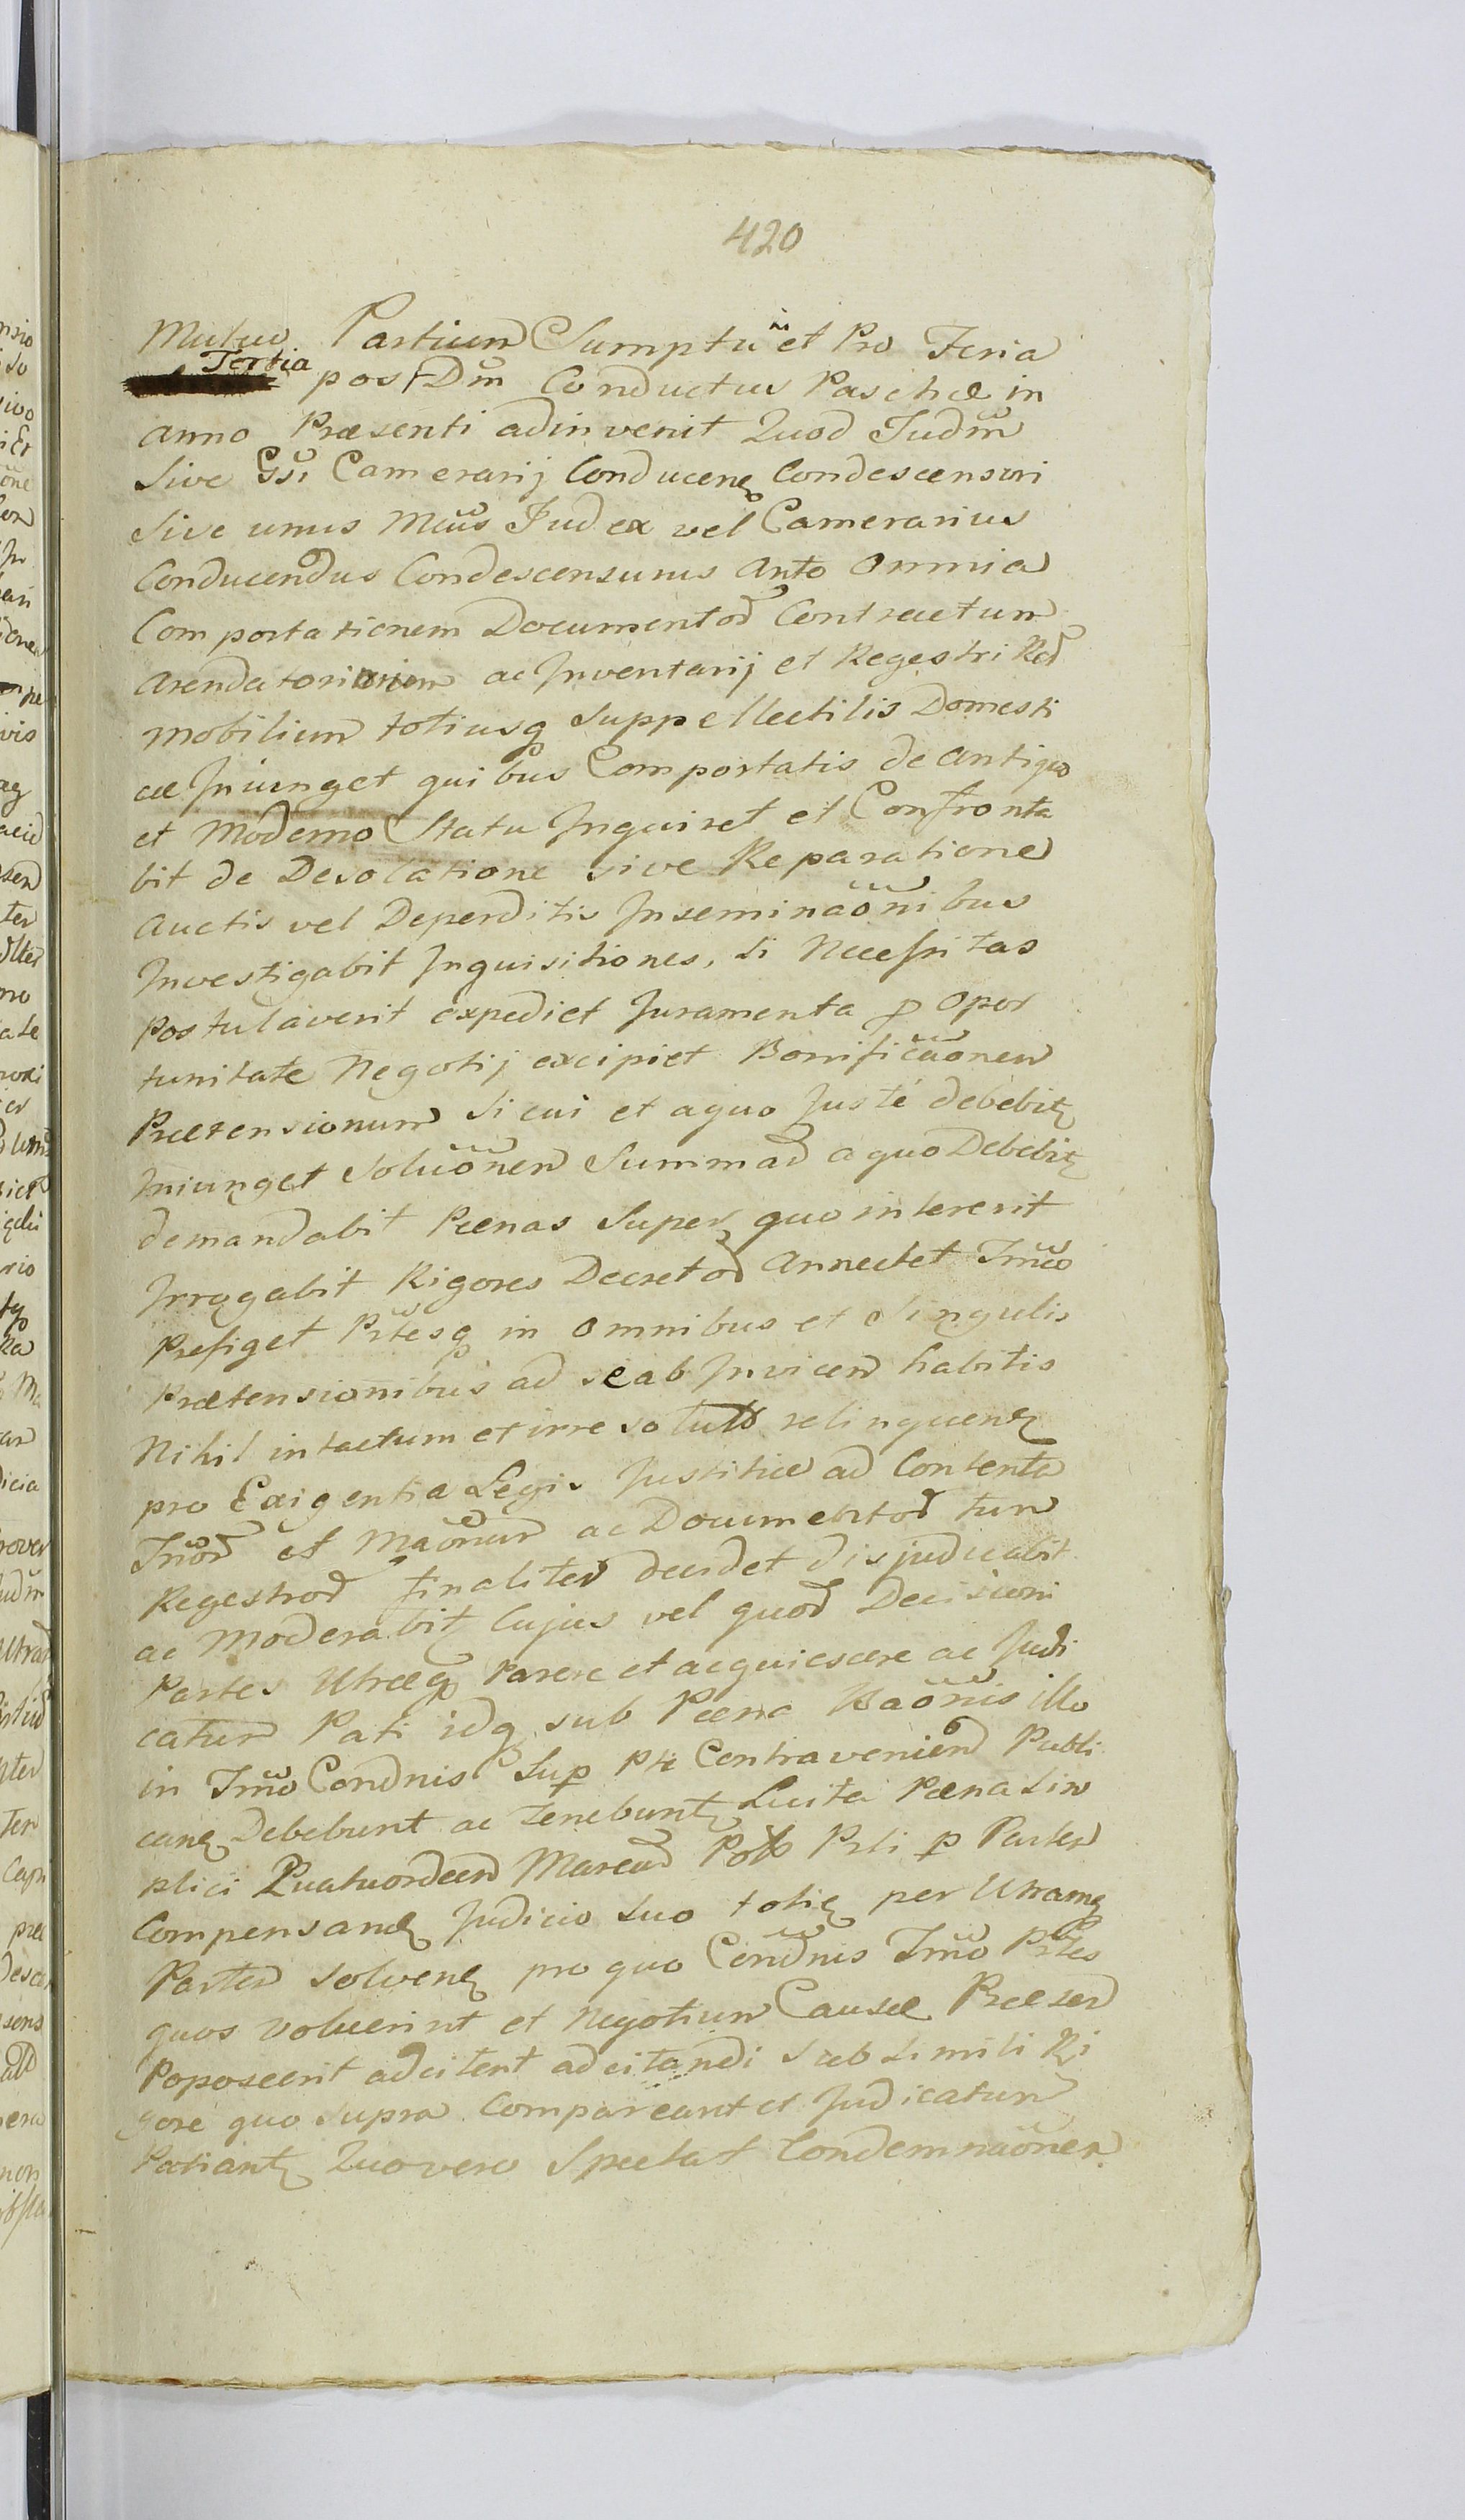 420
Mutuo Partium Sumptu et Pro Feria
Tertia post Dm̃ Conductus Paschæ in
anno Præsenti adinvenit Quod Judm̃
Sive Camerarij Conducen Condescensuri
Sive unus Judex vel Camerarius
Conducendus Condescensurus Anto Omnia
Comportationem Documentor Contractum
Arendatoriorum ac Inventarij et Regestri
mobilium totiusq Suppellectilis Domesti
cæ Iniunget quibus Comportatis de antiquo
et Moderno Statu Inquiret et Confronta
bit de Desolatione sive Reparatione
Auctis vel Deperditis Inseminaõnibus
Investigabit Inquisitiones, si Necessitas
Postulaverit expediet Juramenta p Opor
tunitate Negotij excipiet Bonificaõnem
Prætensionum Si cui et aquo Juste debebit
Iniunget Soluõnem Summar a quo Debebit
demandabit Pænas Super quo intererit
Irrogabit Rigores Decretor Annectet Tm̃o
Prefiget Pr̃tesq in omnibus et Singulis
Prætensionibus ad se ab Invicem habitis
Nihil intactum et irresolutum relinquen
pro Exigentia Legis Justitiæ ad Contenta
et ac Documentor tum
Regestror finaliter decidet disjudicabit
ac Moderabit Cujus vel quor Decisioni
Partes Utræq Parere et acquiescere ac Judi
catum Pati idq sub Pæna Baõnis illo
in Tm̃o Condnis Sup Pte Contravenien Publi
can Debebunt ac tenebunt Luita Pæna Sim
plici Quatuordecem Marcar Pol Prti p Partem
Compensan Judicio Suo toties per Utramq
Partem Solven pro quo Condnis Tm̃o Prtes
quos Voluerint et Negotium Causæ Præsen
Poposcerit adcitent adcitandi Sub Simili Ri
gore quo Supra Compareant et Judicatum
Patiant Quo vero Spectat Condemnaõnem